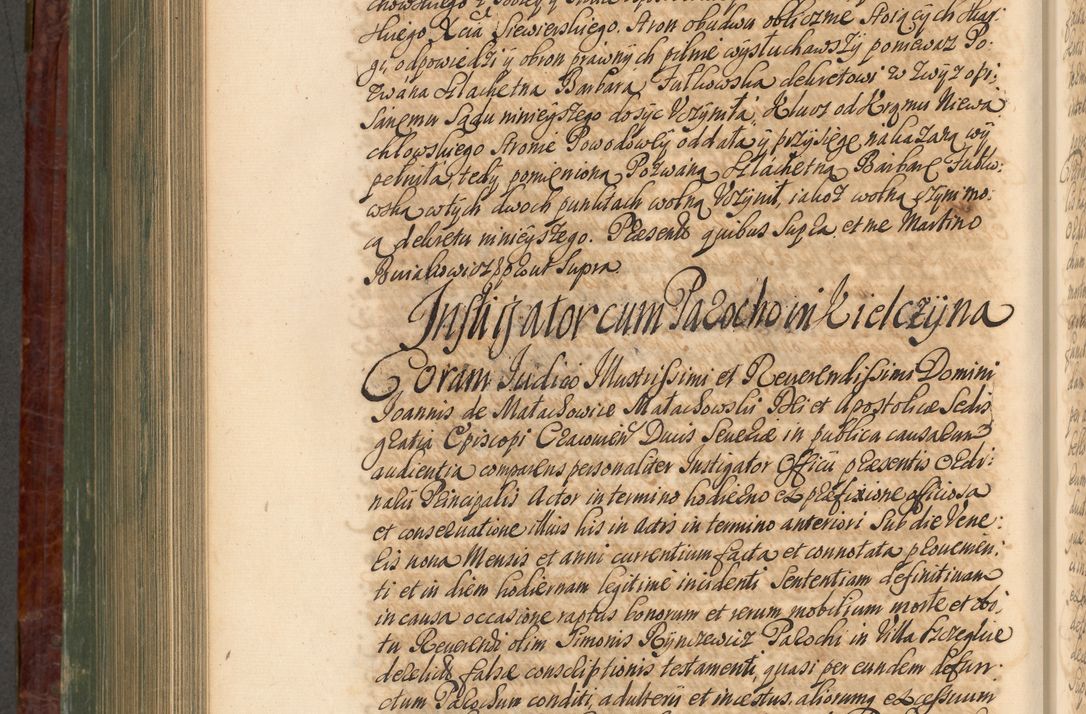 chowskiego z
skiego Xcia Siewierskiego. Stron obudwu obliczme stoiących skar
gi, odpowiedzi y obron prawnych pilnie wysłuchawszy ponieważ Po-
zwana Szlachetna Barbara Fulkowska dekretowi w zwyż opi:
sanemu Sądu ninieyszego dosyc Uczyniła, Klucz od Krzmu Niewia
chlowskiego stronie Powodowey oddała y przysięgę nakazaną wy
pełniła, tedy pomieniona Pozwaną Szlachetną Barbarę Fulkow-
wską w tych dwoch punktach wolną Uczynił, iakoż wolną czyni mo-
cą dekretu ninieyszego. Præsentib quibus supra et me Martino
Buiakowicz prout supra
Instigator cum Parocho in Kielczyna
Coram Judicio Illustrissimi et Reverendissimi Domini
Joannis de Małachowice Małachowski Dei et Apostolicæ Sedis
gratia Episcopi Cracovien Ducis Severiæ in publica causarum
audientia comparens personaliter Instigator Officii præsentis Ordi:
narii Principalis Actor in termino hodierno ex præfixione officiosa
et conservatione illius his in Actis in termino anteriori sub die Vene:
ris nona Mensis et anni currentium facta et connotata provenien:
ti et in diem hodiernam legitime incidenti Sententiam definitivam
in causa occasione raptus bonorum et rerum mobilium morte et obi:
tu Reverendi olim Simonis Rynczewicz Parochi in Villa Szczeglice
derelict falsæ conscriptionis testamenti, quasi per eundem defun-
ctum Parochum conditi, adulterii et incestus aliorumq excessuum